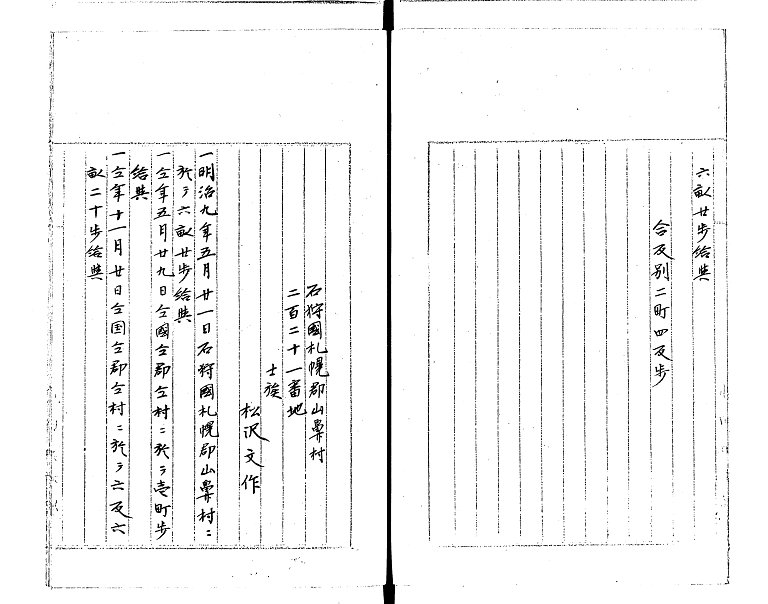 六畝廿歩給與
合反別二町四反歩
石狩國札幌郡山鼻村
二百二十一番地
士族
松沢文作
一明治九年五月廿一日石狩國札幌郡山鼻村ニ
於テ六畝廿歩給與
一仝年五月廿九日仝國仝郡仝村ニ於テ壱町歩
給與
一仝年十一月廿日仝国仝郡仝村ニ於テ六反六
畝二十歩給與